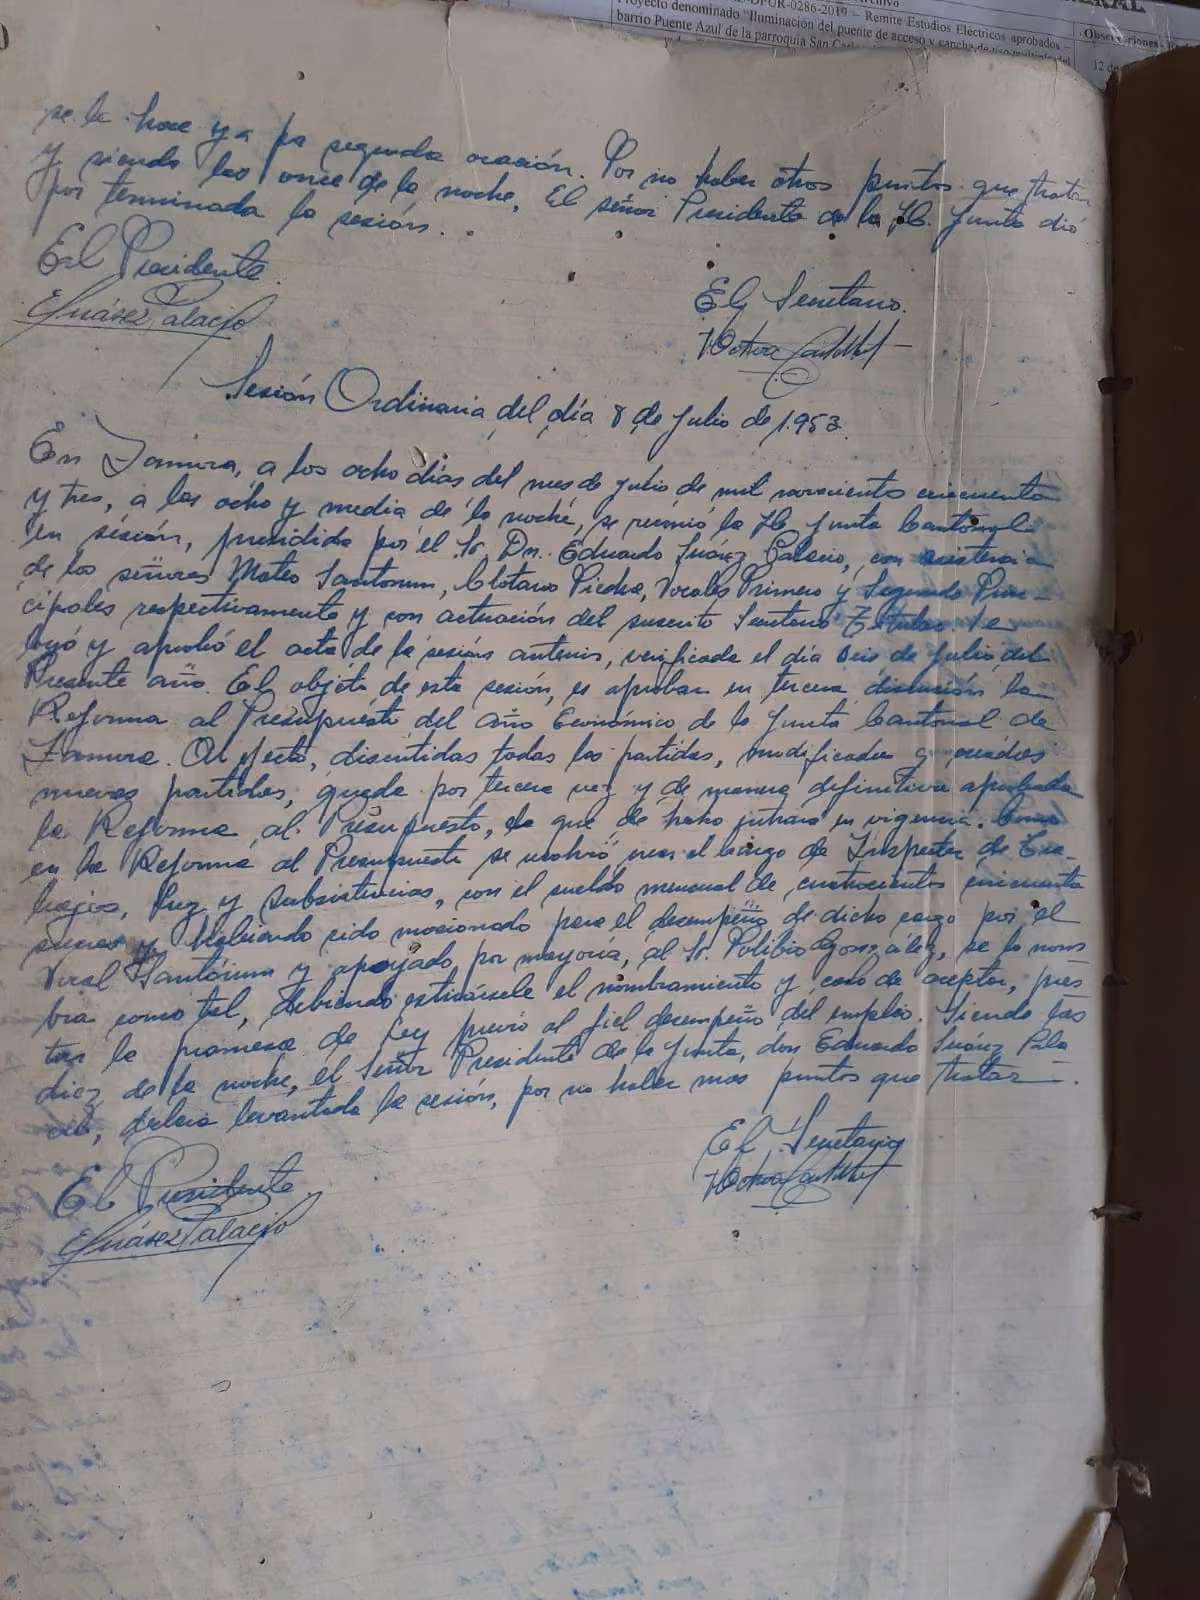 DPUR-0286-2019 – Remite Estudios Eléctricos aprobados –
Proyecto denominado "Iluminación del puente de acceso y cancha de uso múltiple del
barrio Puente Azul de la parroquia San Carlos
12 de
se le hace ya pa segunda oración. Por no haber otros puntos que tratar
y siendo las once de la noche, El señor Presidente de la H. Junta dió
por terminada la sesión.
El Presidente
ESuárez Palacio
El Secretario.
Sesión Ordinaria del día 8 de Julio de 1.953.
En Zamora, a los ocho días del mes de julio de mil novecientos cincuenta
y tres, a las ocho y media de la noche, se reunió la H. Junta Cantonal
en sesión, presidida por el Sr. Dn. Eduardo Suárez Palacio, con asistencia
de los señores Mateo Santorum, Clotario Piedra, Vocales Primero y Segundo Prin-
cipales respectivamente y con actuación del suscrito Secretario Titular. Se
leyó y aprobó el acta de la sesión anterior, verificada el día Seis de Julio del
Presente año. El objeto de esta sesión, es aprobar en tercera discusión la
Reforma al Presupuesto del año Económico de la Junta Cantonal de
Zamora. Al efecto, discutidas todas las partidas, modificadas y creadas
nuevas partidas, queda por tercera vez y de manera definitiva aprobada
la Reforma al Presupuesto, la que de hecho entrará en vigencia. Como
en la Reforma al Presupuesto se resolvió crear el cargo de Inspector de Tra-
bajos, Luz y Subsistencias, con el sueldo mensual de cuatrocientos cincuenta
sucres y habiendo sido mocionado para el desempeño de dicho cargo por el
Vocal Santórum y apoyado por mayoría, al Sr. Polibio González, se lo nom
bra como tal, debiendo extendérsele el nombramiento y caso de aceptar, pres
tar la promesa de Ley previo al fiel desempeño del empleo. Siendo las
diez de la noche, el Señor Presidente de la Junta, don Eduardo Suárez Pala
cio, declara levantada la sesión, por no haber mas puntos que tratar.
El Presidente
ESuárez Palacio
El Secretario